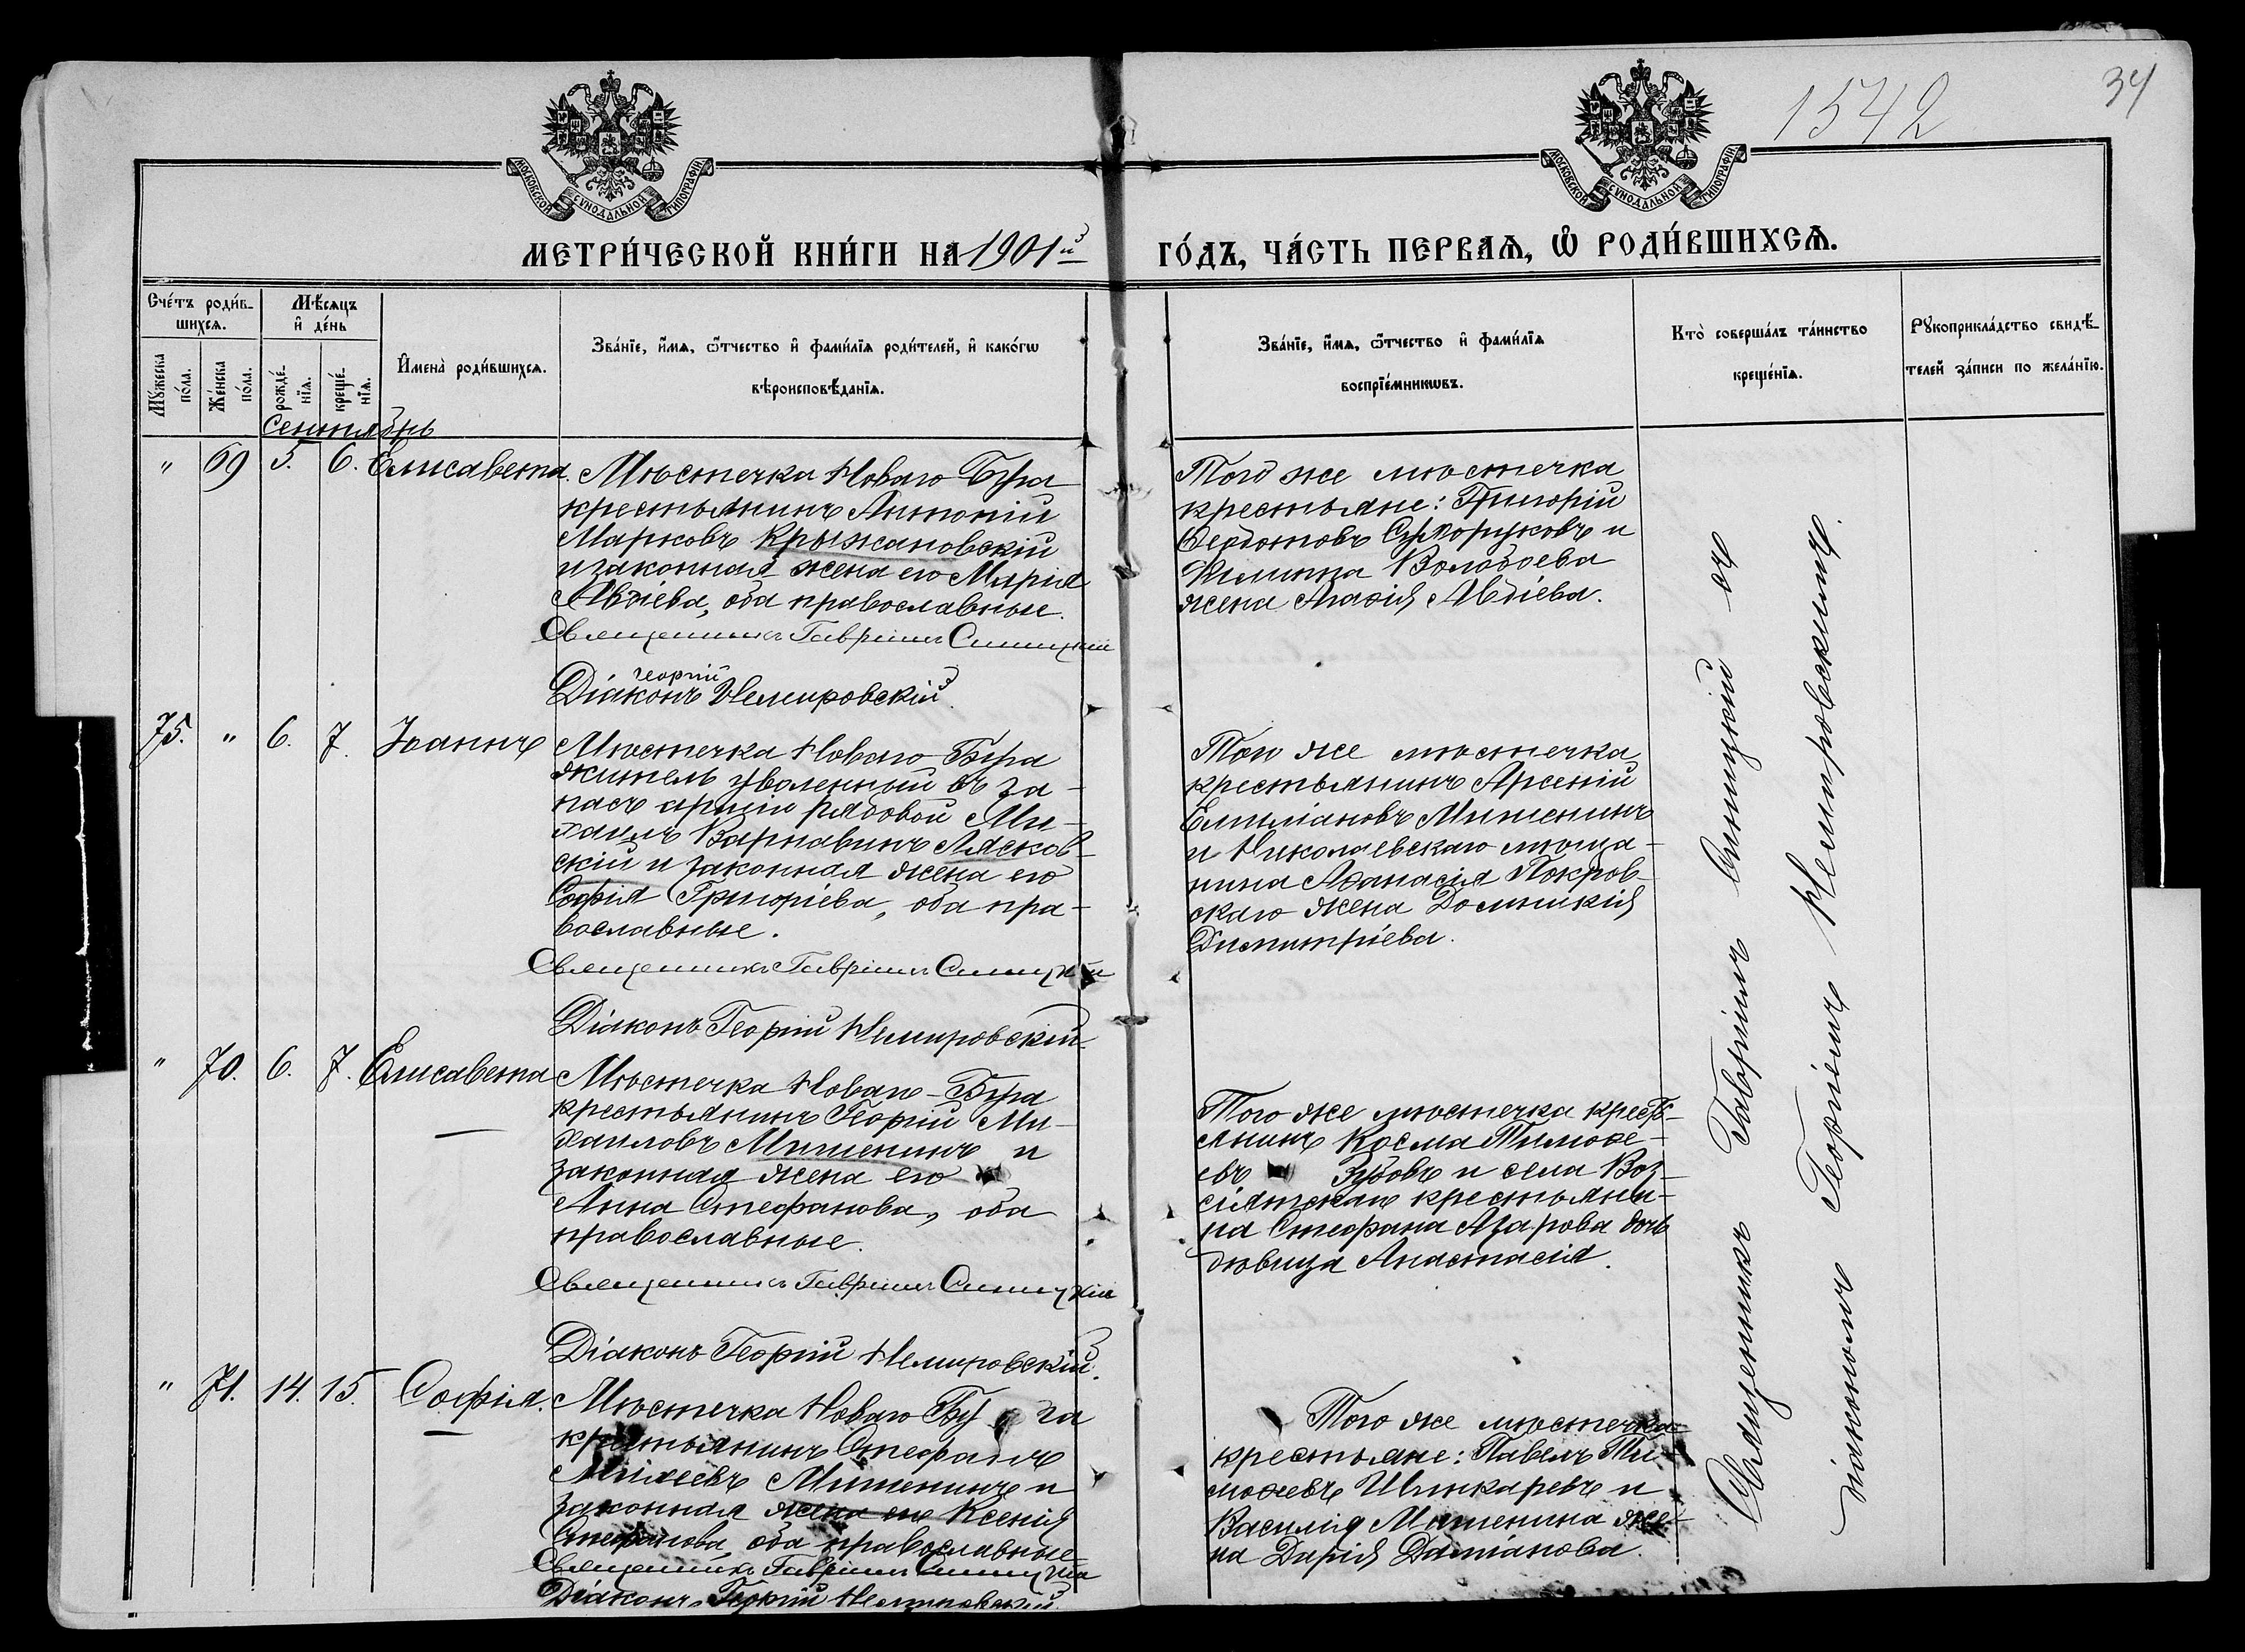 1542
34
МОСКОВСКОЙ СУНОДАЛЬНОЙ ТИПОГРАФІИ
МОСКОВСКОЙ СУНОДАЛЬНОЙ ТИПОГРАФІИ
МЕТРИ́ЧЕСКОЙ КНИ́ГИ НА 1901й ГО́ДЪ, ЧА́СТЬ ПЕРВАѦ, Ѡ РОДИ́ВШИХСѦ.
Сче́тъ роди́в-
шихсѧ.
Мꙋ́жеска по́ла.
Же́нска по́ла.
Мѣсѧцъ
и҆ де́нь
рожде́-
нїѧ.
креще́-
нїѧ.
И҆мена̀ роди́вшихсѧ.
Зва́нїе, и҆́мѧ, ѻ҆́тчество и҆ фами́лїѧ роди́телей, и҆ како́гѡ
вѣроисповѣ́данїѧ.
Зва́нїе, и҆́мѧ, ѻ҆́тчество и҆ фами́лїѧ
воспрїе́мникѡвъ.
Кто̀ соверша́лъ та́инство
креще́нїѧ.
Рꙋкоприкла́дство свидѣ́-
телей за́писи по жела́нїю.
Сентябрь
" 69 5. 6. Елисавета.
Мѣстечка Новаго Буга
крестьянинъ Антоній
Марковъ Крыжановскій
и законная жена его Марія
Авдіева, оба православные.
Священникъ Гавріилъ Синицкій
Георгій
Діаконъ Немировскій.
Того же мѣстечка
крестьяне: Григорій
Сукоруковъ и
Филиппа Волобоева
жена Агафія Авдіева.
75. " 6. 7. Іоаннъ
Мѣстечка Новаго-Буга
житель уволенный въ за-
пасъ арміи рядовой Ми-
хаилъ Варнавинъ Лясков-
скій и законная жена его
Софія Григоріева, оба пра-
вославные.
Священникъ Гавріилъ Синицкій
Діаконъ Георгій Немировскій.
Того же мѣстечка
крестьянинъ Арсеній
Емиліановъ Мишенинъ
и Николаевскаго мѣща-
нина Аѳанасія Покров-
скаго жена Домникія
Димитріева.
" 70. 6. 7. Елисавета
Мѣстечка Новаго-Буга
крестьянинъ Георгій Ми-
хаиловъ Мишенинъ и
законная жена его
Анна Стефанова, оба
православные.
Священникъ Гавріилъ Синицкій
Діаконъ Георгій Немировскій.
Того же мѣстечка кресть-
янинъ Косма Тимоѳе-
евъ Зубовъ и села Воз-
сіятскаго крестьяни-
на Стефана Азарова дочь
дѣвица Анастасія.
" 71. 14. 15. Софія.
Мѣстечка Новаго Буга
крестьянинъ Стефанъ
Михеевъ Мишенинъ и
законная жена его Ксенія
Стефанова, оба православные
Священникъ Гавріилъ Синицкій
Діаконъ Георгій Немировскій.
Того же мѣстечка
крестьяне: Павелъ Ти-
моѳеевъ Шинкаревъ и
Василія Мишенина же-
на Дарія Даміанова.
Священникъ Гавріилъ Синицкій съ
діакономъ Георгіемъ Немировскимъ.